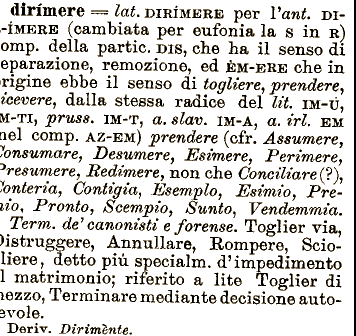 dirímere = lat. DIRÍMERE per l'ant. DI-
S-ÍMERE (cambiata per eufonia la S in R)
comp. della partic. DIS, che ha il senso di
separazione, remozione, ed ÈM-ERE che in
origine ebbe il senso di togliere, prendere,
ricevere, dalla stessa radice del lit. IM-Ù,
IM-TI, pruss. IM-T, a. slav. IM-A, a. irl. EM
(nel comp. AZ-EM) prendere (cfr. Assumere,
Consumare, Desumere, Esimere, Perimere,
Presumere, Redimere, non che Conciliare(?),
Conteria, Contigia, Esempio, Esimio, Pre-
mio, Pronto, Scempio, Sunto, Vendemmia.
Term. de' canonisti e forense. Toglier via,
Distruggere, Annullare, Rompere, Scio-
gliere, detto più specialm. d'impedimento
al matrimonio; riferito a lite Toglier di
mezzo, Terminare mediante decisione auto-
revole.
Deriv. Dirimènte.